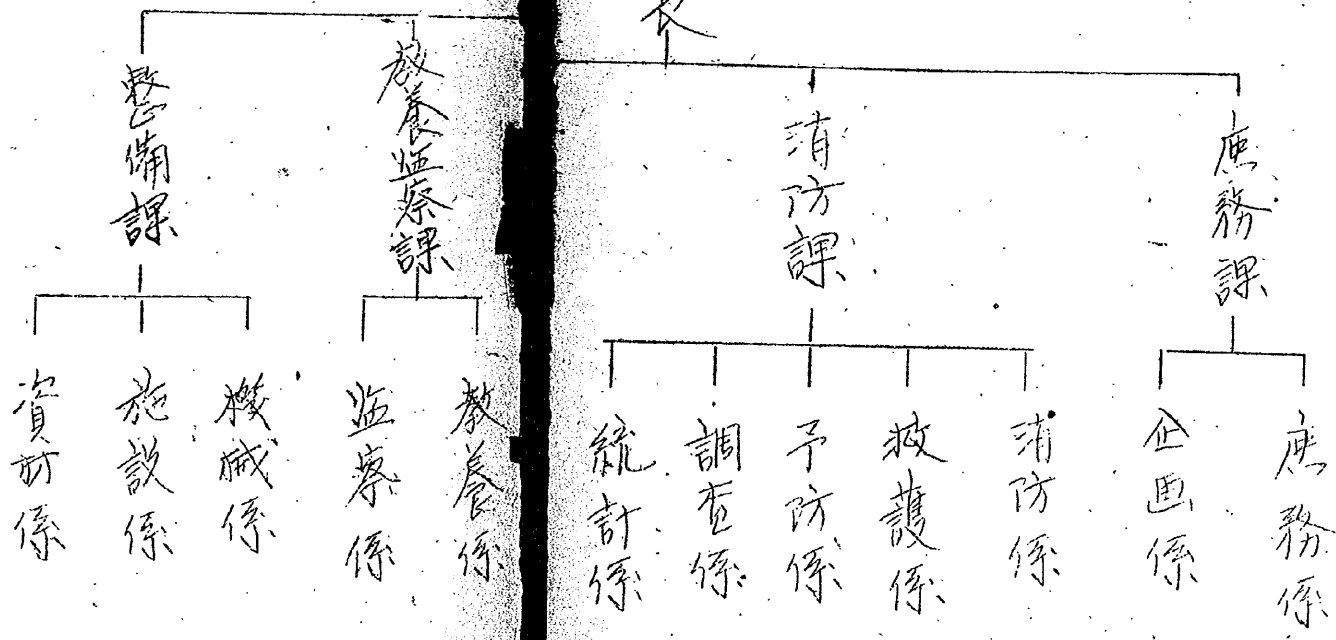 長
庶務課
消防課
教養監察課
整備課
庶務係
企画係
消防係
救護係
予防係
調査係
統計係
教養係
監察係
機械係
施設係
資材係